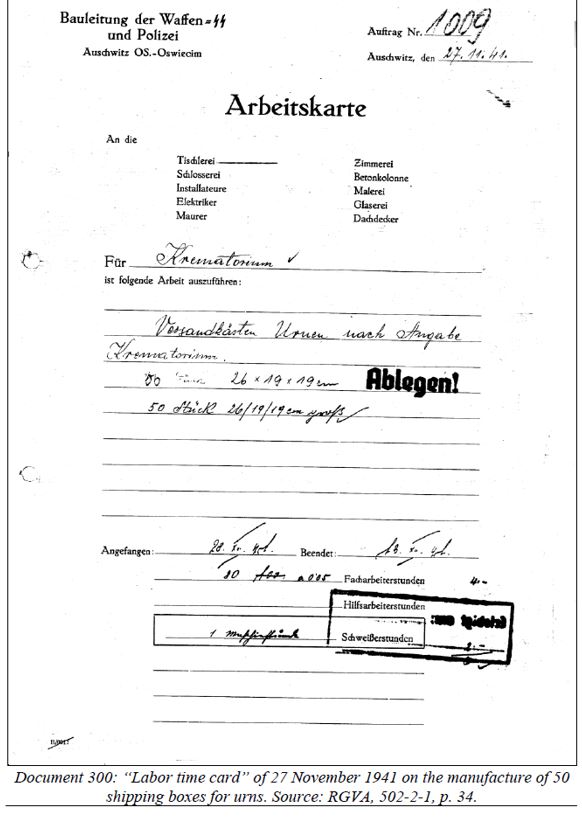 Bauleitung der Waffen-SS
und Polizei
Auschwitz OS.-Oswiecim
Auftrag Nr. 1009
Auschwitz, den 27.11.41.
Arbeitskarte
An die
Tischlerei
Schlosserei
Installateure
Elektriker
Maurer
Zimmerei
Betonkolonne
Malerei
Glaserei
Dachdecker
Für Krematorium
ist folgende Arbeit auszuführen:
Versandkästen Urnen nach Angabe
Krematorium.
26 × 19 × 19 cm
Ablegen!
50 Stück 26/19/19 cm groß
Angefangen: Beendet:
Facharbeiterstunden 4.-
Hilfsarbeiterstunden
Schweißerstunden
Document 300: “Labor time card” of 27 November 1941 on the manufacture of 50
shipping boxes for urns. Source: RGVA, 502-2-1, p. 34.